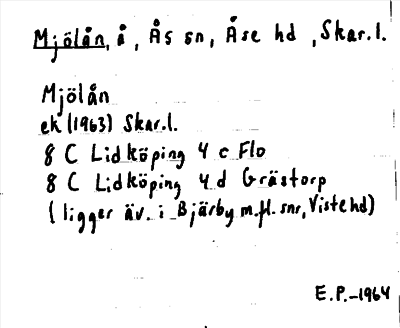 Mjölån, å, Ås sn, Åse hd, Skar.l.
Mjölån
ek (1963) Skar.l.
8 C Lidköping 4 c Flo
8 C Lidköping 4 d Grästorp
(ligger äv. i Bjärby m.fl. snr, Viste hd)
E.P.-1964